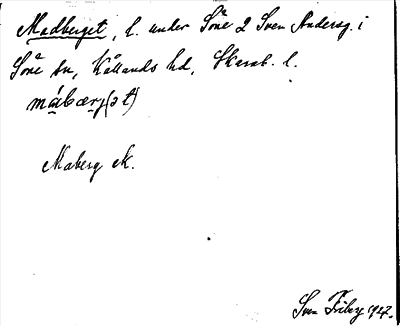 Madberget, l. under Söne 2 Sven Andersg. i
Söne sn, Kållands hd, Skarab. l.
mábærj(ət)
Maberg Ek.
Sven Friberg 1927.